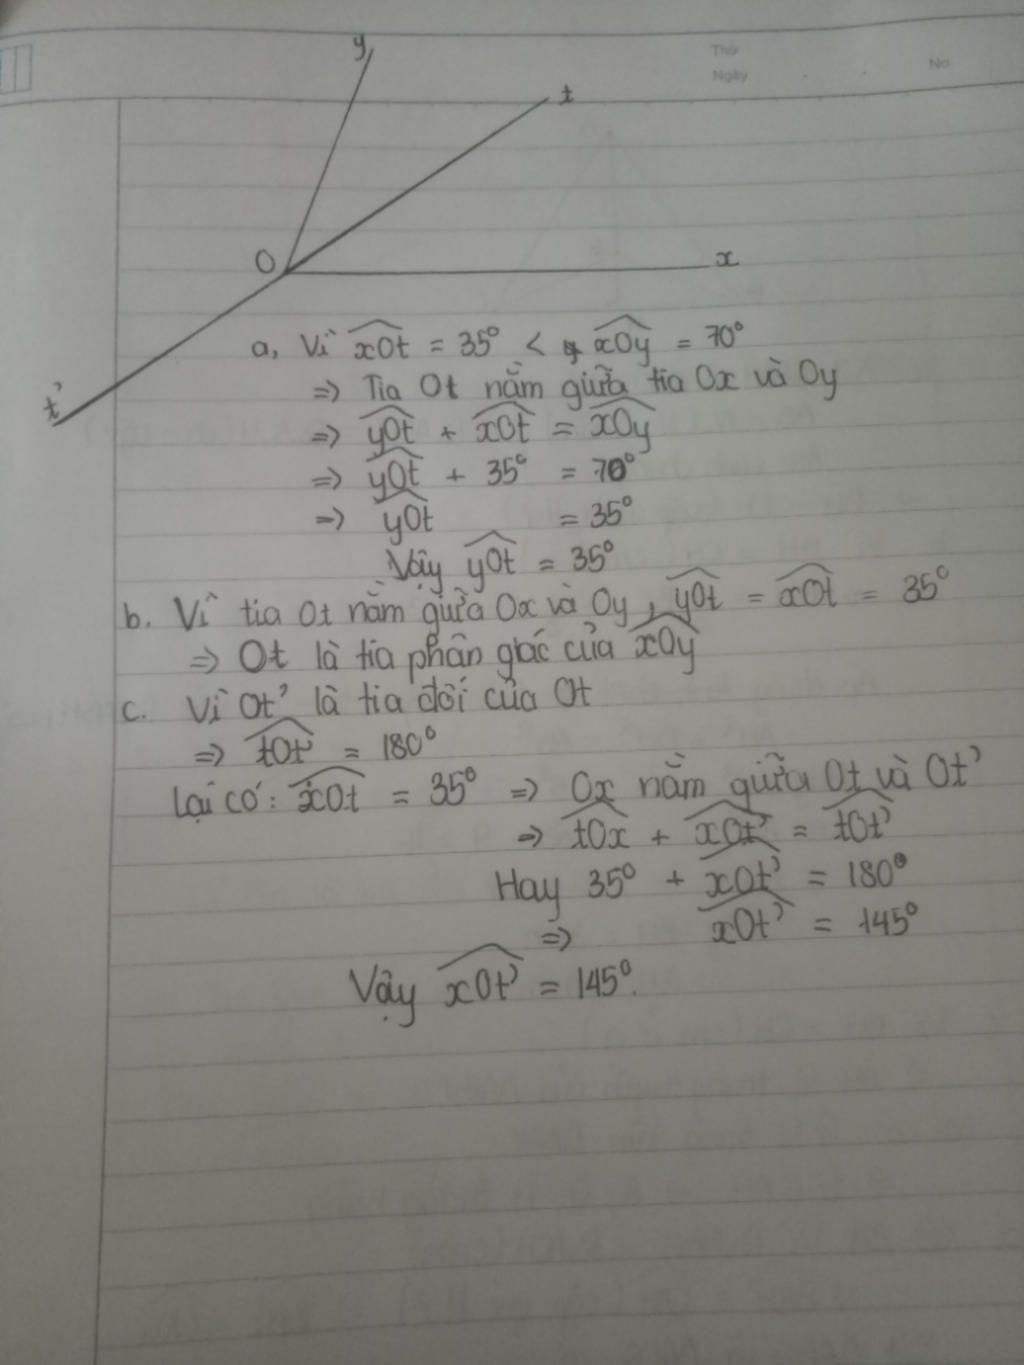 Thứ
Ngày
No
y
t
O
x
t'
a, Vì xOt = 35° < xOy = 70°
=> Tia Ot nằm giữa tia Ox và Oy
=> yOt + xOt = xOy
=> yOt + 35° = 70°
=> yOt = 35°
Vậy yOt = 35°
b. Vì tia Ot nằm giữa Ox và Oy, yOt = xOt = 35°
=> Ot là tia phân giác của xOy
c. Vì Ot' là tia đối của Ot
=> tOt' = 180°
Lại có: xOt = 35° => Ox nằm giữa Ot và Ot'
=> tOx + xOt' = tOt'
Hay 35° + xOt' = 180°
=> xOt' = 145°
Vậy xOt' = 145°.